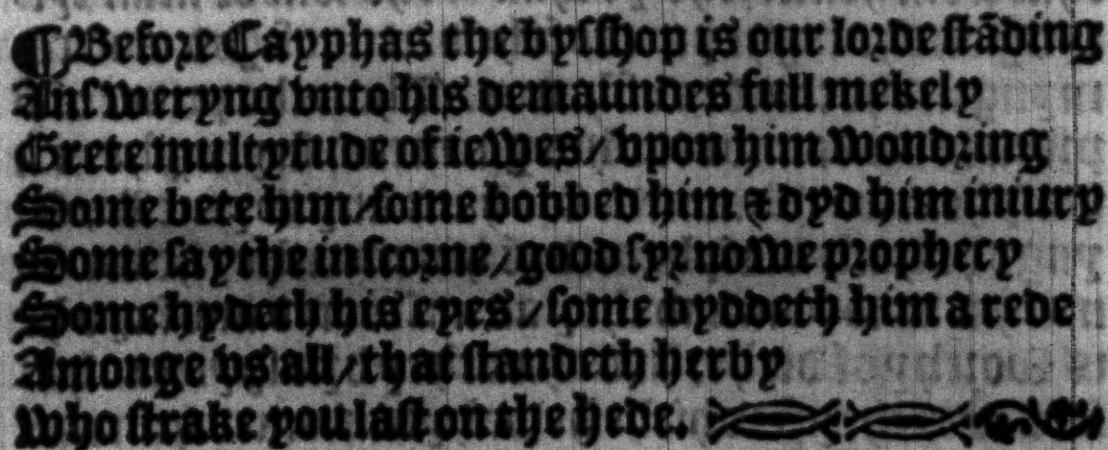 ¶Before Cayphas the byſſhop is our lorde ſtãding
Anſweryng vnto his demaundes full mekely
Grete multytude of iewes / vpon him wondring
Some bete him / ſome bobbed him & dyd him iniury
Some ſaythe in ſcorne / good ſyr nowe prophecy
Some hydeth his eyes / ſome byddeth him a rede
Amonge vs all / that ſtandeth herby
Who ſtrake you laſt on the hede.